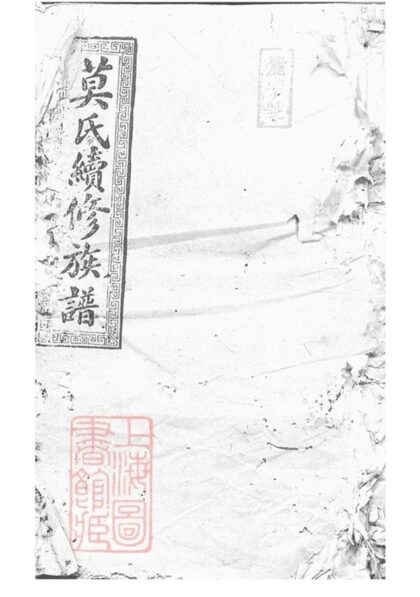 莫氏續修族譜
上海圖
書館藏